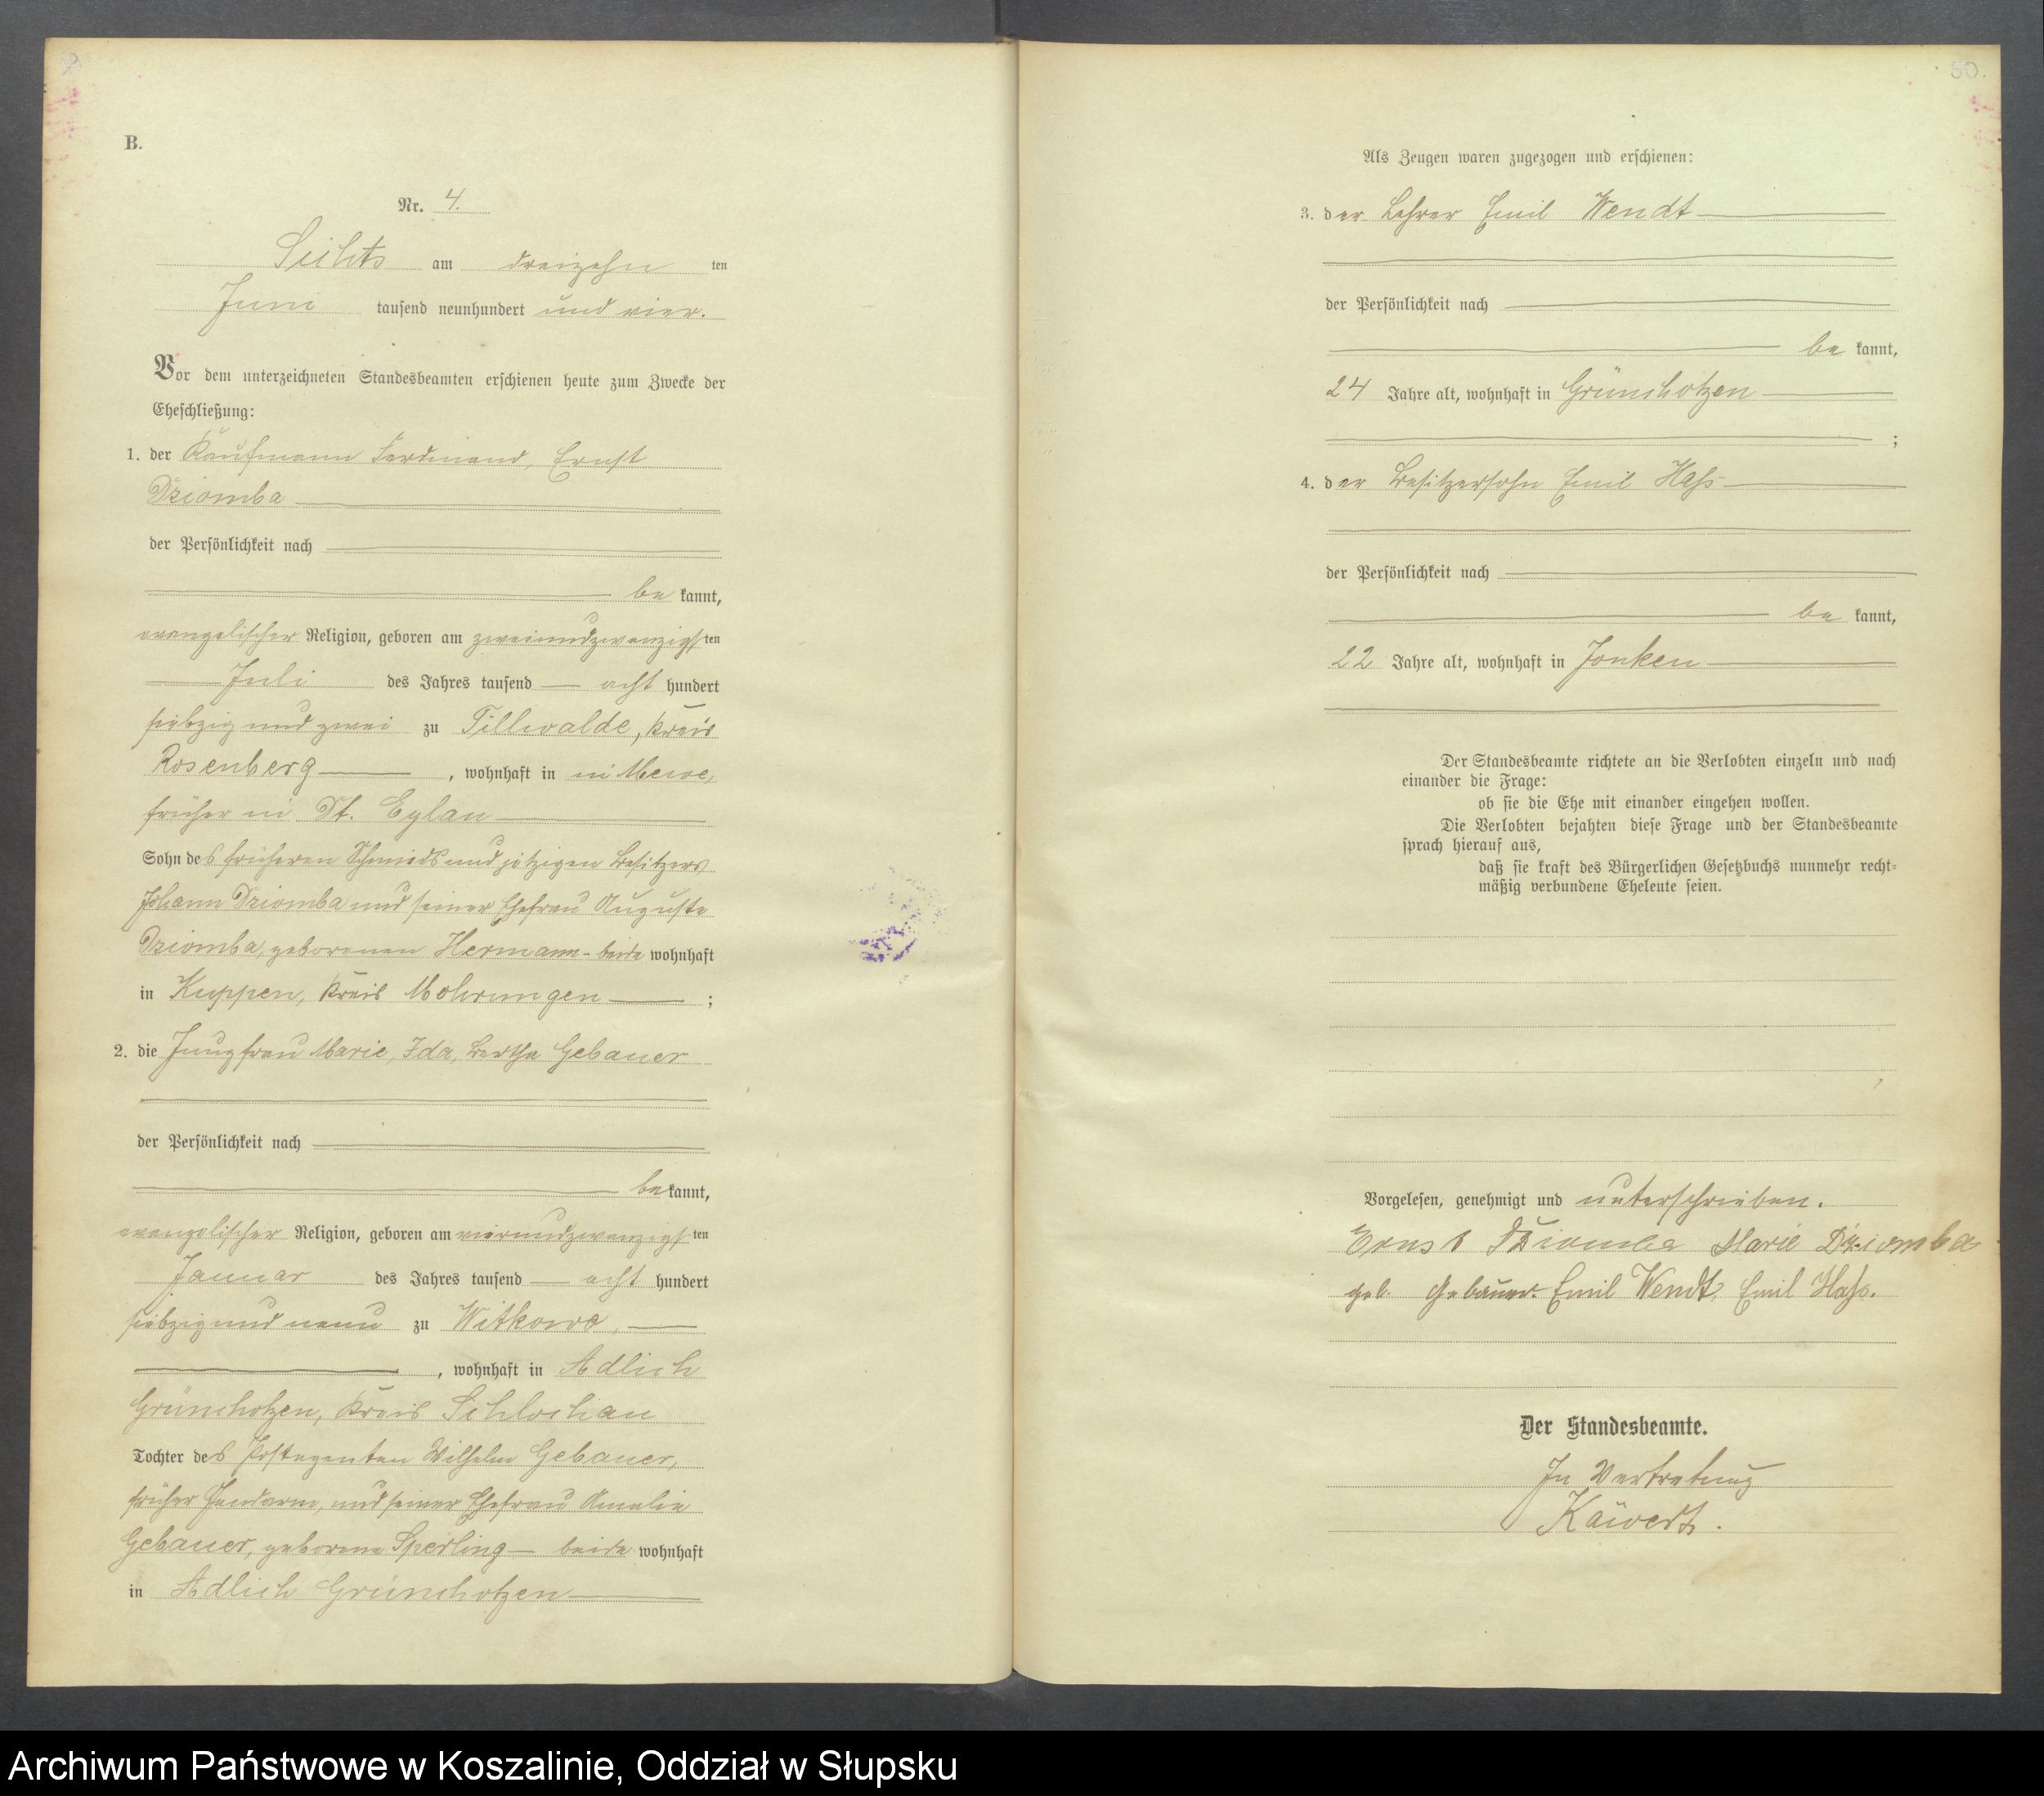 B.
Nr. 4.
am dreizehn ten
Juni tausend neunhundert und vier.
Vor dem unterzeichneten Standesbeamten erschienen heute zum Zwecke der
Eheschließung:
1. der Kaufmann Ferdinand, Ernst
Dziomba
der Persönlichkeit nach
be kannt,
evangelischer Religion, geboren am zweiundzwanzigsten
Juli des Jahres tausend acht hundert
siebzig und zwei zu Tillwalde, Kreis
Rosenberg, wohnhaft in in Mewe,
früher in Dt. Eylau
Sohn des früheren Schmieds und jetzigen Besitzers
Johann Dziomba und seiner Ehefrau Auguste
Dziomba, geborenen Hermann - beide wohnhaft
in Kuppen, Kreis Mohrungen ;
2. die Jungfrau Marie, Ida, Bertha Gebauer
der Persönlichkeit nach
be kannt,
evangelischer Religion, geboren am vierundzwanzigsten
Januar des Jahres tausend acht hundert
siebzig und neun zu Witkowo,
, wohnhaft in Adlich
Grünchotzen, Kreis Schlochau
Tochter des Postagenten Wilhelm Gebauer,
früher Gendarm, und seiner Ehefrau Amalie
Gebauer, geborene Sperling - beide wohnhaft
in Adlich Grünchotzen
50.
Als Zeugen waren zugezogen und erschienen:
3. der Lehrer Emil Wendt
der Persönlichkeit nach
be kannt,
24 Jahre alt, wohnhaft in Grünchotzen
;
4. der Besitzersohn Emil Haß
der Persönlichkeit nach
be kannt,
22 Jahre alt, wohnhaft in Jonken
Der Standesbeamte richtete an die Verlobten einzeln und nach
einander die Frage:
ob sie die Ehe mit einander eingehen wollen.
Die Verlobten bejahten diese Frage und der Standesbeamte
sprach hierauf aus,
daß sie kraft des Bürgerlichen Gesetzbuchs nunmehr recht-
mäßig verbundene Eheleute seien.
Vorgelesen, genehmigt und unterschrieben.
Ernst Dziomba Marie Dziomba
geb. Gebauer. Emil Wendt, Emil Haß.
Der Standesbeamte.
In Vertretung
Archiwum Państwowe w Koszalinie, Oddział w Słupsku